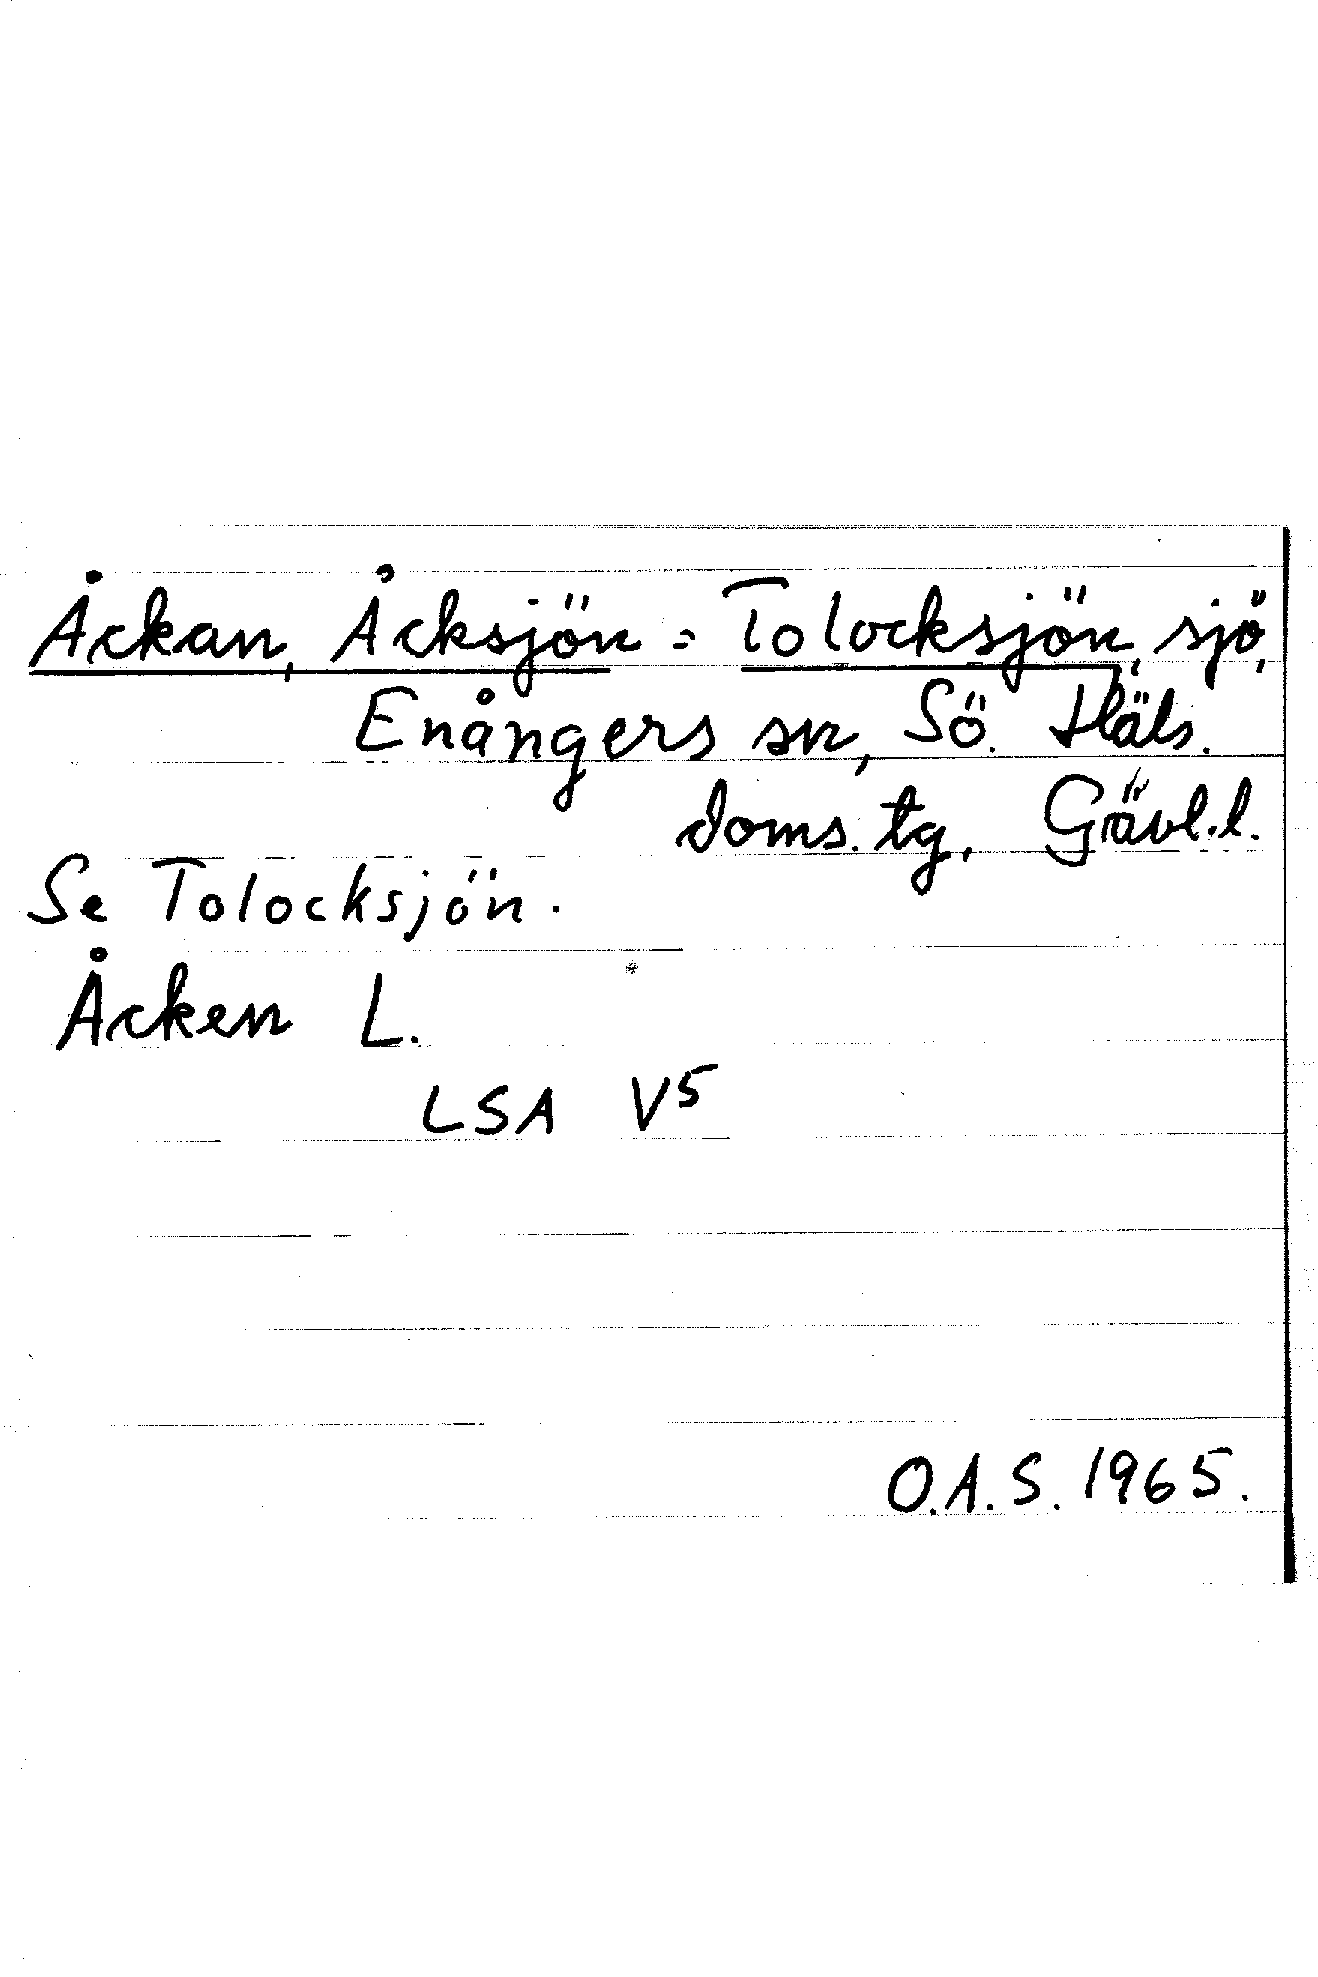 Åckan, Åcksjön = Tolocksjön, sjö,
Enångers sn, Sö. Häls.
doms. tg, Gävl.l.
Se Tolocksjön.
Åcken L.
LSA V5
O.A.S. 1965.